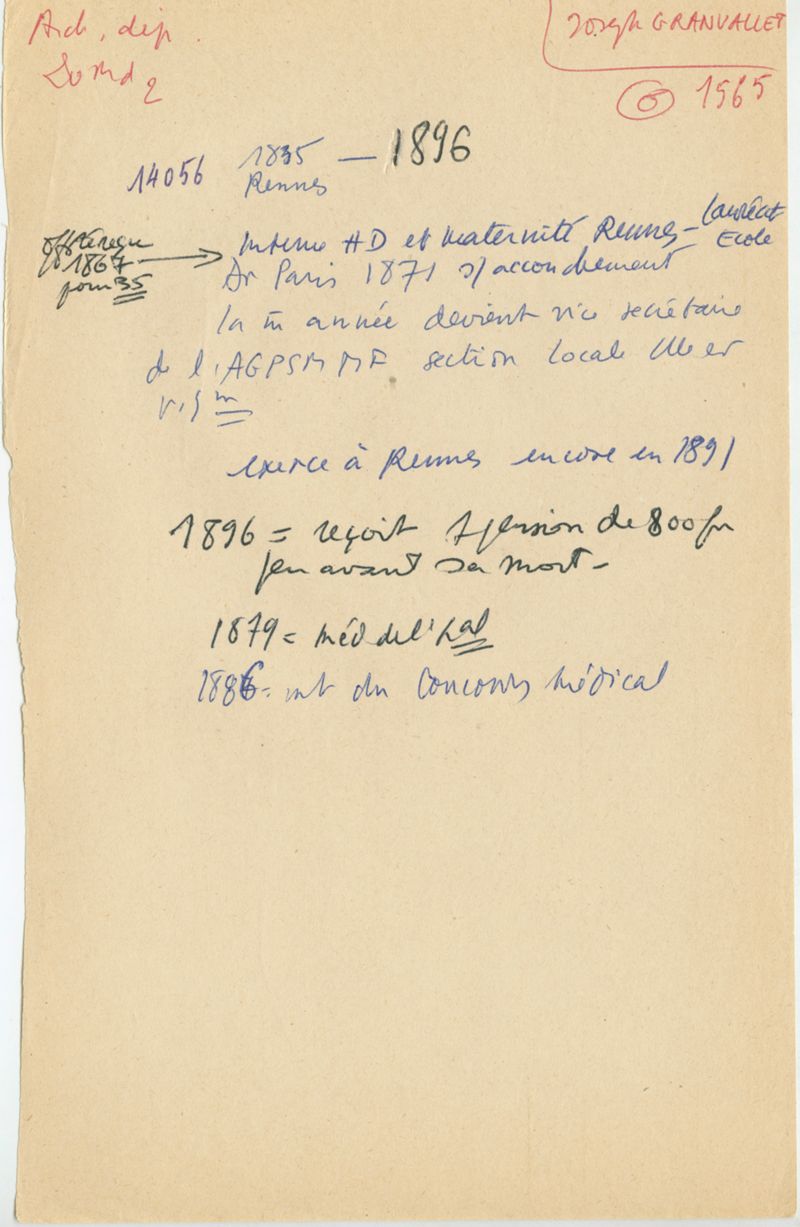 Arch. dép.
2
Joseph GRANVALLET
1565
14056 1835 — 1896
Rennes
1867
pour 35
Interne HD et Maternité Rennes - Lauréat
Ecole
Dr Paris 1871 s/ accouchement
la m année devient vice secrétaire
de l'AGPSMMF section locale Ille et
Vil
exerce à Rennes encore en 1891
1896 = reçoit 1 pension de 800 fr
peu avant sa mort -
1879 = méd de l'
1886 = mb du Concours Médical